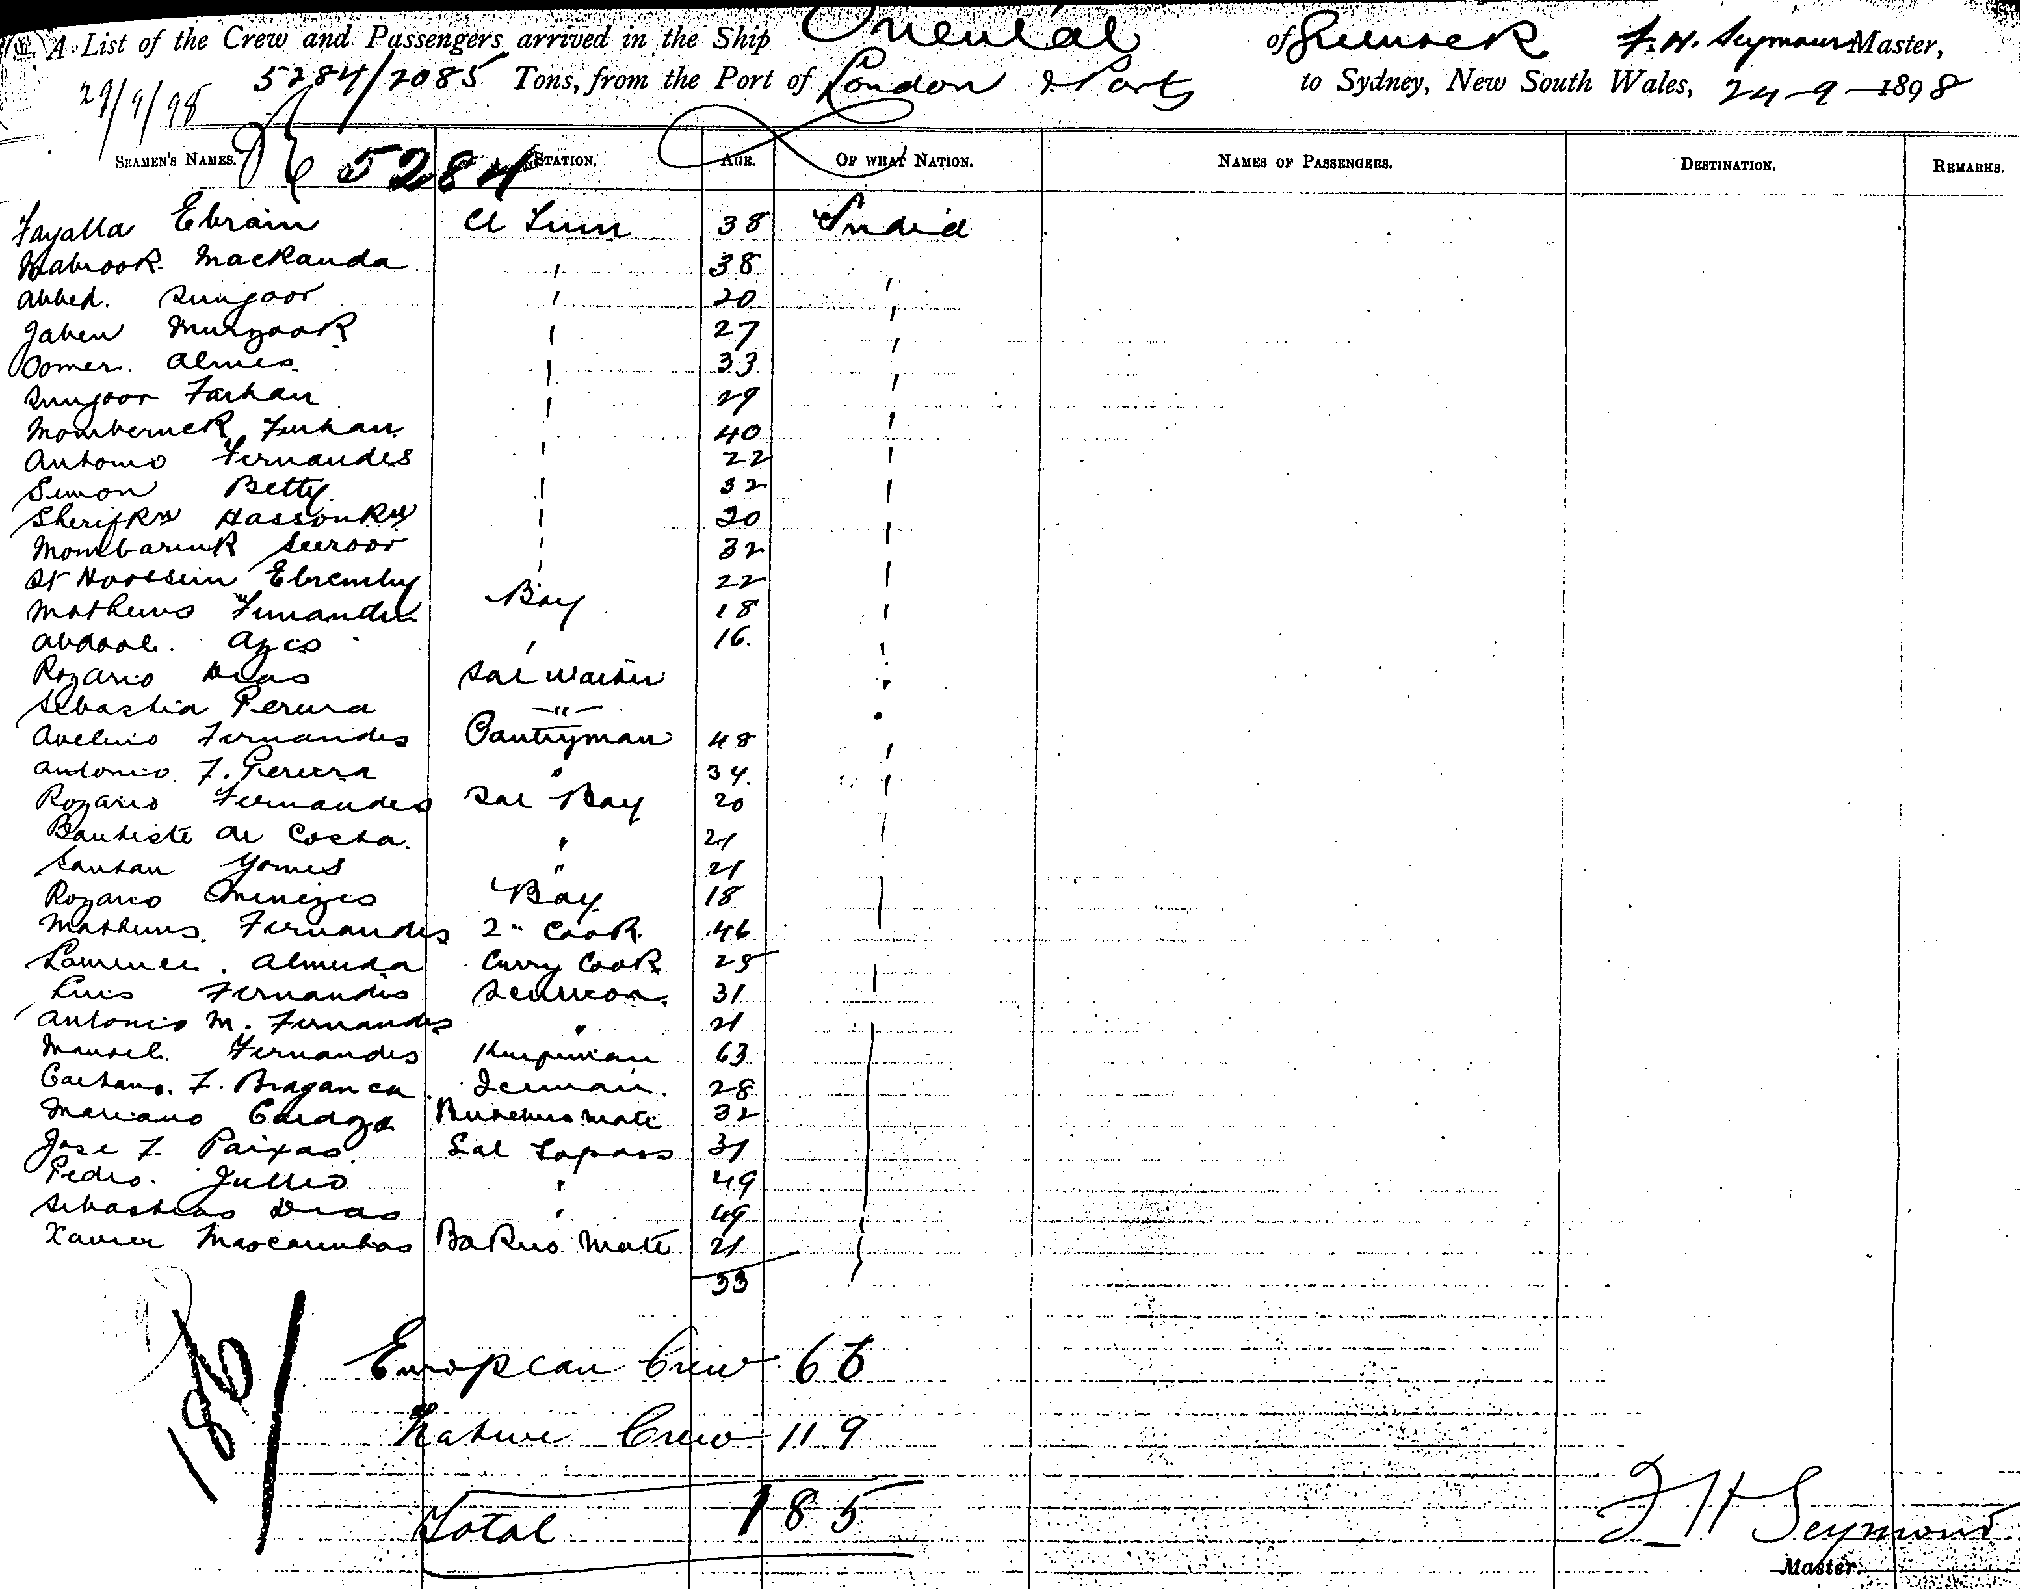 A List of the Crew and Passengers arrived in the Ship Oriental of Greenock F. H. Seymour Master,
29/9/98 5284/2085 Tons, from the Port of London & Ports to Sydney, New South Wales, 24-9-1898
5284
SEAMEN'S NAMES. STATION. AGE. OF WHAT NATION. NAMES OF PASSENGERS. DESTINATION. REMARKS.
Fayalla Ebrain 38 India
Mabrook Mackanda ' 38 '
Abbed. Sungoor ' 20 '
Jaben Murzook ' 27 '
Oomer. Almes ' 33 '
Sungoor Farhan ' 29 '
Momberuck Furhan ' 40 '
Antonio Fernandes ' 22 '
Simon Betty ' 32 '
Hassonkhy ' 20 '
Mombaruck Seeroor ' 32 '
Hoossein ' 22 '
Mathews Fernandes Boy 18 '
Abdool. ' 16. '
Rozario Dias Sal Waiter '
Sebastia Perura " '
Avelino Fernandes Pantryman 48 '
Antonio. F. Pereira " 34. '
Rozario Fernandes Sal Boy 20 '
Bautiste de Costa. " 21
Santan Gomes " 21
Rozario Menezes Boy 18
Mathews. Fernandes 2" Cook 46
Laurence. Almeida Curry Cook 25
Luis Fernandis Scullion. 31
Antonio M. Fernandes " 21
Manoel. Fernandes 63
Caetano. F. Braganca 28
Mariano Cardoza Butchers Mate 32
Jose F. Paixao Sal Topass 31
Pedro. Jullio " 49
Sebastiao Dias " 49
Xavier Mascarenhas Bakers Mate 21
33
186
European Crew 66
Native Crew 119
Total 185
F H Seymour
Master.